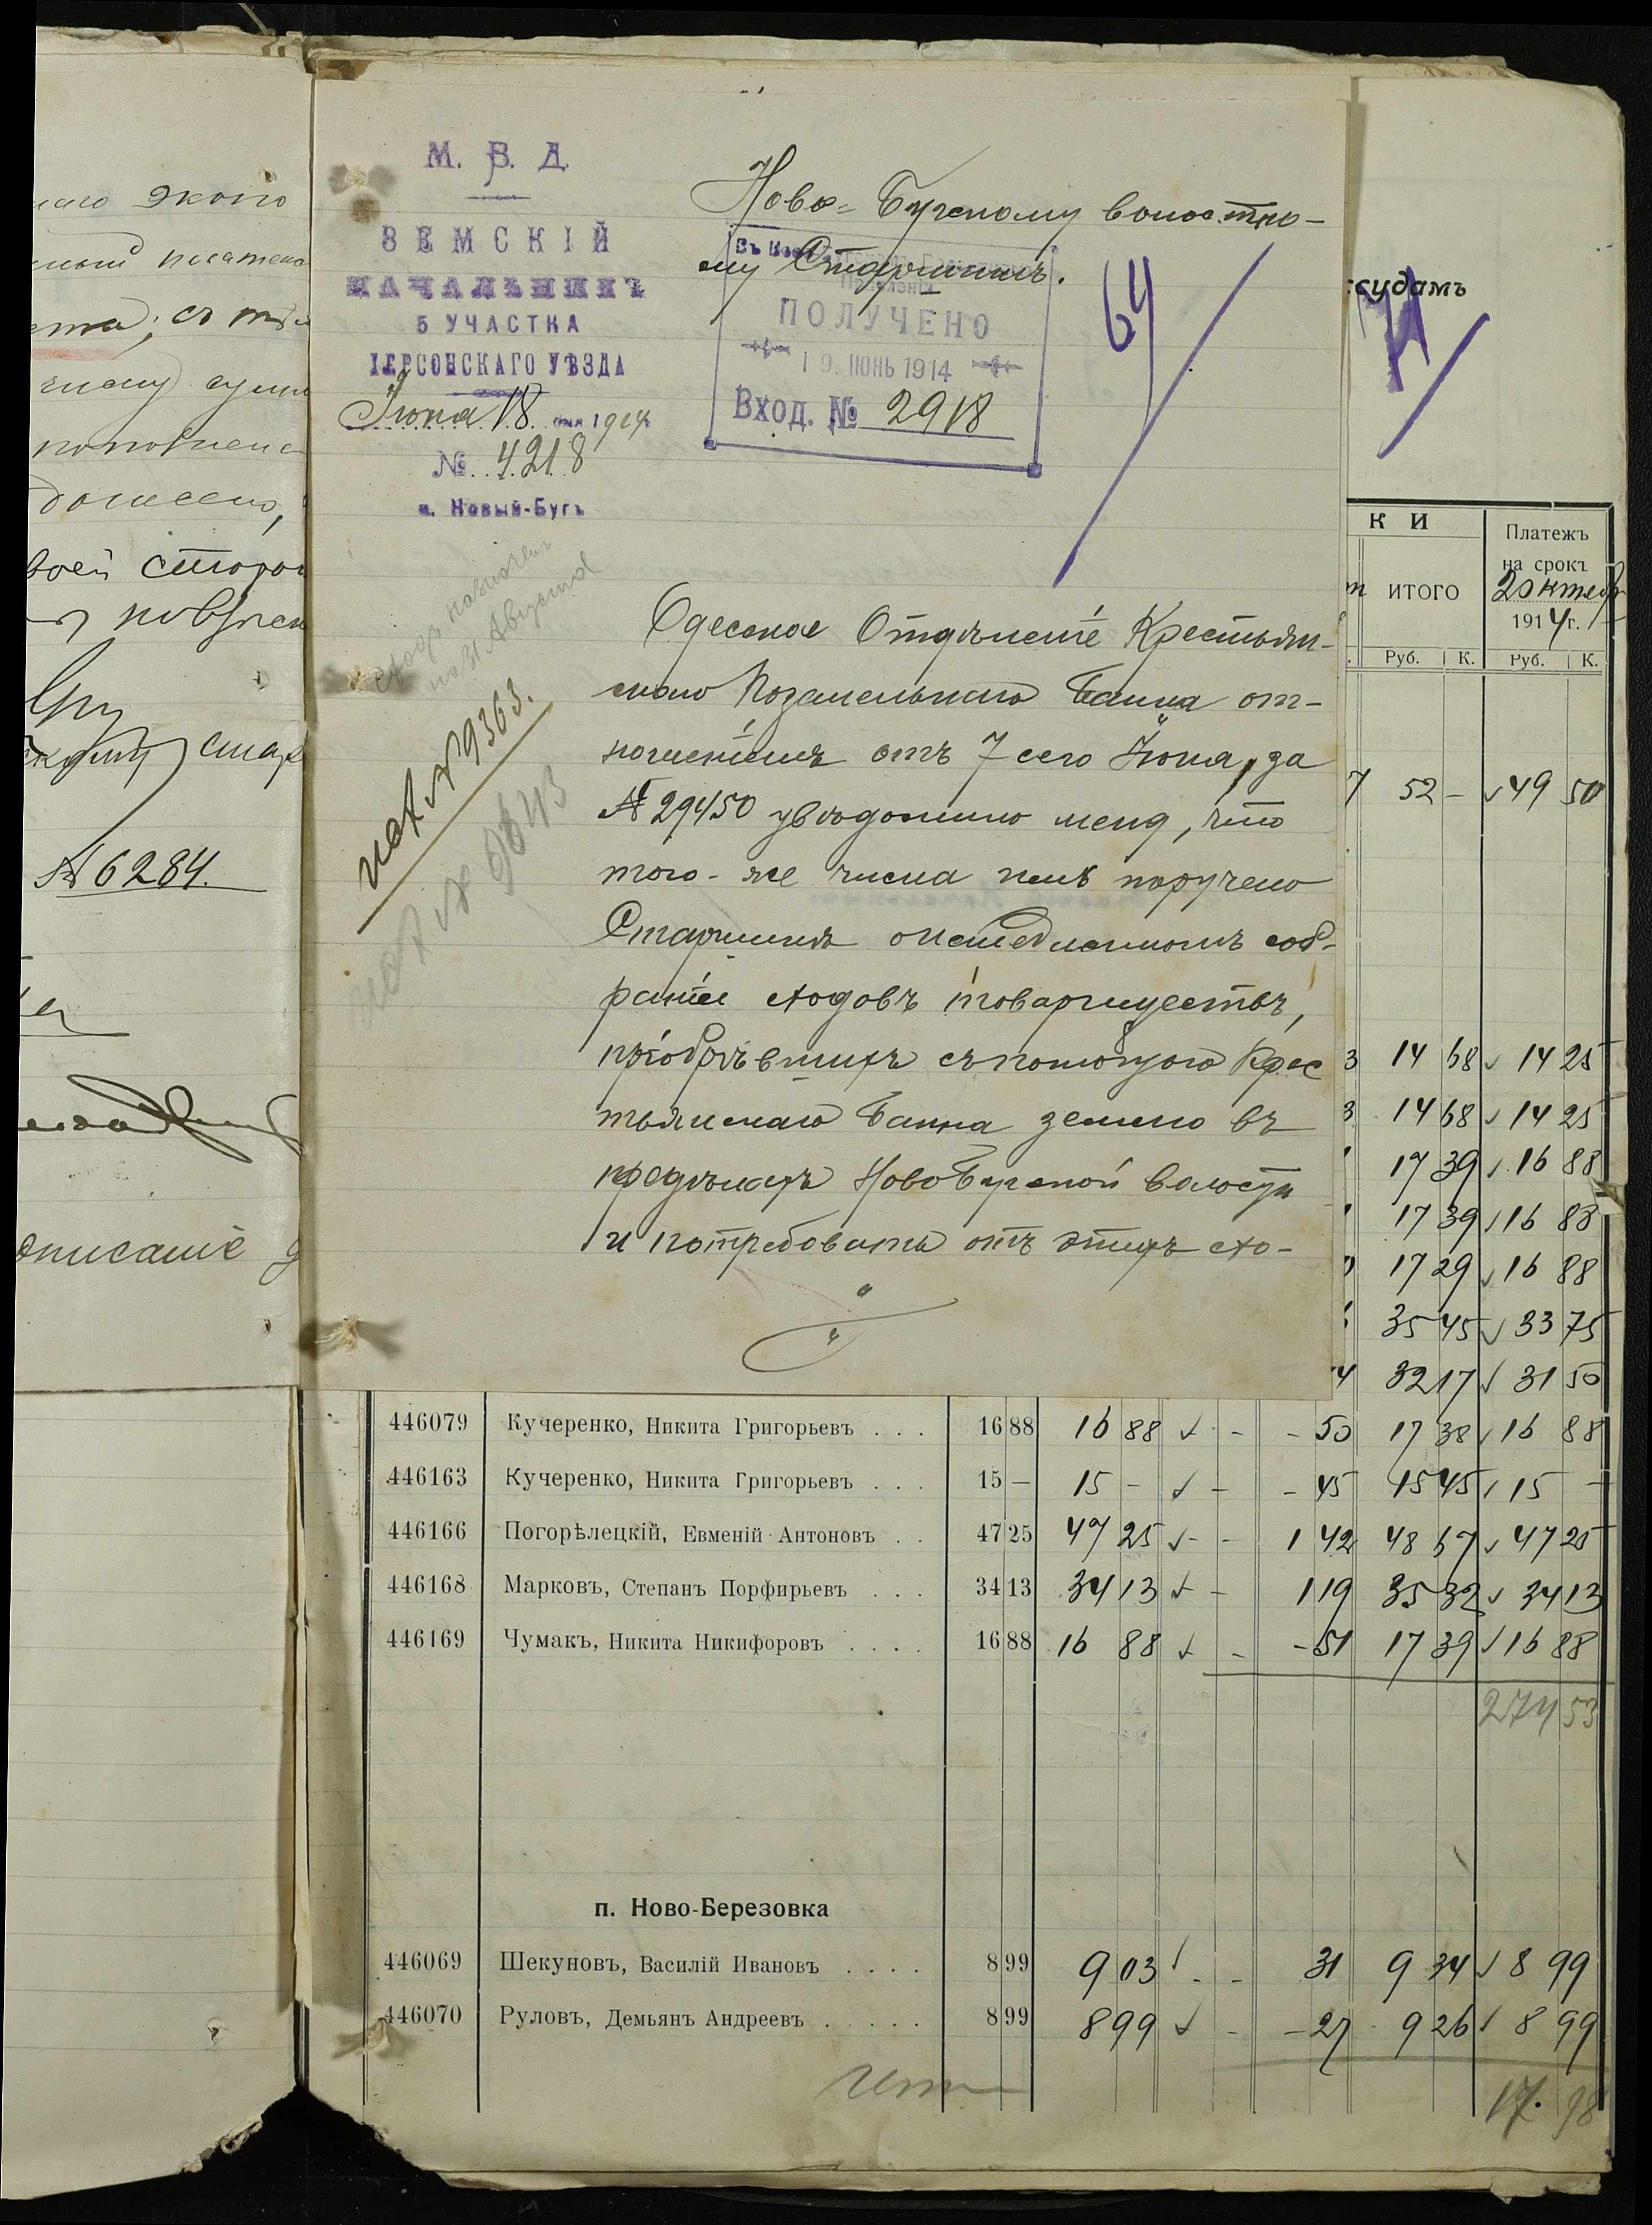 экого
; съ
суммы
своей сторон
№ 6284.
описаніе
М. В. Д.
ЗЕМСКІЙ
НАЧАЛЬНИКЪ
5 УЧАСТКА
ХЕРСОНСКАГО УѢЗДА
Іюня 18 дня 1914 г.
№ 4218
м. Новый-Бугъ
Ново-Бугскому волостно-
му Старшинѣ.
ПОЛУЧЕНО
19. ІЮНЬ 1914
Вход. № 2918
64
Сходъ назначенъ
на 31 Августа
исх № 9363.
исх №
Одесское Отдѣленіе Крестьян-
скаго Поземельнаго Банка от-
ношеніемъ отъ 7 сего Іюня, за
№ 29450 увѣдомило меня, что
того-же числа имъ поручено
Старшинѣ о немедленномъ соб-
раніи сходовъ товариществъ,
пріобрѣвшихъ съ помощью Крес
тьянскаго Банка землю въ
предѣлахъ Новобугской волости
и потребовать отъ этихъ схо-
ссудамъ
К И
Платежъ
на срокъ
2 октяб
1914 г.
ИТОГО
Руб. К. Руб. К.
7 52 – 49 50
3 14 68 14 25
3 14 68 14 25
17 39 16 88
17 39 16 88
17 29 16 88
35 45 33 75
4 32 17 31 50
446079 Кучеренко, Никита Григорьевъ . . . 16 88 16 88 - - 50 17 38 16 88
446163 Кучеренко, Никита Григорьевъ . . . 15 — 15 - - - 45 15 45 15 -
446166 Погорѣлецкій, Евменій Антоновъ . . 47 25 47 25 - - 1 42 48 67 47 25
446168 Марковъ, Степанъ Порфирьевъ . . . 34 13 34 13 - 1 19 35 32 34 13
446169 Чумакъ, Никита Никифоровъ . . . . 16 88 16 88 - - 51 17 39 16 88
274 53
п. Ново-Березовка
446069 Шекуновъ, Василій Ивановъ . . . . 8 99 9 03 - - 31 9 34 8 99
446070 Руловъ, Демьянъ Андреевъ . . . . . 8 99 8 99 - - 27 9 26 8 99
17. 98